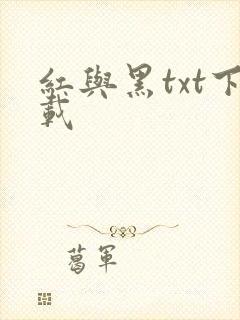 紅與黑txt下
載
葛軍